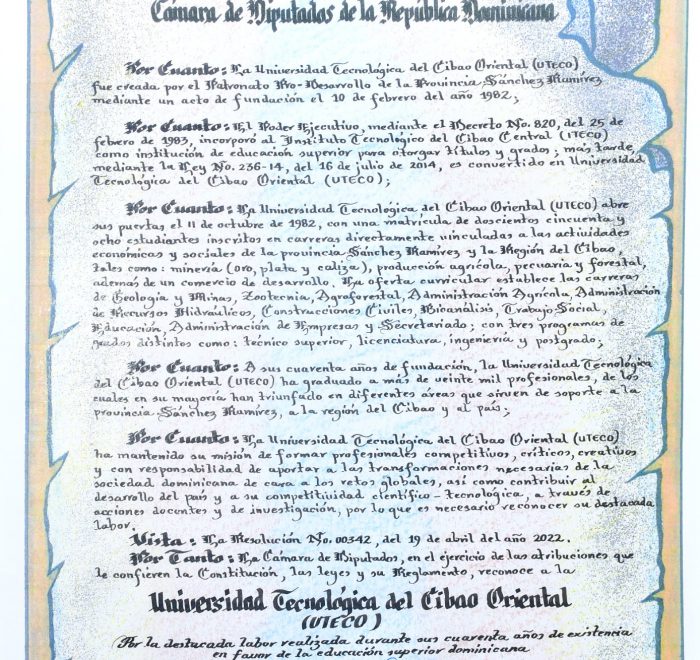 Cámara de Diputados de la República Dominicana
Por Cuanto: La Universidad Tecnológica del Cibao Oriental (UTECO)
fue creada por el Patronato Pro-Desarrollo de la Provincia Sánchez Ramírez
mediante un acto de fundación el 10 de febrero del año 1982;
Por Cuanto: El Poder Ejecutivo, mediante el Decreto No. 820, del 25 de
febrero de 1983, incorporó al Instituto Tecnológico del Cibao Central (ITECO)
como institución de educación superior para otorgar títulos y grados; más tarde,
mediante la Ley No. 236-14, del 16 de julio de 2014, es convertido en Universidad
Tecnológica del Cibao Oriental (UTECO);
Por Cuanto: La Universidad Tecnológica del Cibao Oriental (UTECO) abre
sus puertas el 11 de octubre de 1982, con una matrícula de doscientos cincuenta y
ocho estudiantes inscritos en carreras directamente vinculadas a las actividades
económicas y sociales de la provincia Sánchez Ramírez y la Región del Cibao,
tales como: minería (oro, plata y caliza), producción agrícola, pecuaria y forestal,
además de un comercio de desarrollo. La oferta curricular establece las carreras
de Geología y Minas, Zootecnia, Agroforestal, Administración Agrícola, Administración
de Recursos Hidráulicos, Construcciones Civiles, Bioanálisis, Trabajo Social,
Educación, Administración de Empresas y Secretariado; con tres programas de
grados distintos como: técnico superior, licenciatura, ingeniería y postgrado;
Por Cuanto: A sus cuarenta años de fundación, la Universidad Tecnológica
del Cibao Oriental (UTECO) ha graduado a más de veinte mil profesionales, de los
cuales en su mayoría han triunfado en diferentes áreas que sirven de soporte a la
provincia Sánchez Ramírez, a la región del Cibao y al país;
Por Cuanto: La Universidad Tecnológica del Cibao Oriental (UTECO)
ha mantenido su misión de formar profesionales competitivos, críticos, creativos
y con responsabilidad de aportar a las transformaciones necesarias de la
sociedad dominicana de cara a los retos globales, así como contribuir al
desarrollo del país y a su competitividad científico-tecnológica, a través de
acciones docentes y de investigación, por lo que es necesario reconocer su destacada
labor.
Vista: La Resolución No. 00342, del 19 de abril del año 2022.
Por Tanto: La Cámara de Diputados, en el ejercicio de las atribuciones que
le confieren la Constitución, las leyes y su Reglamento, reconoce a la
Universidad Tecnológica del Cibao Oriental
(UTECO)
Por la destacada labor realizada durante sus cuarenta años de existencia
en favor de la educación superior dominicana